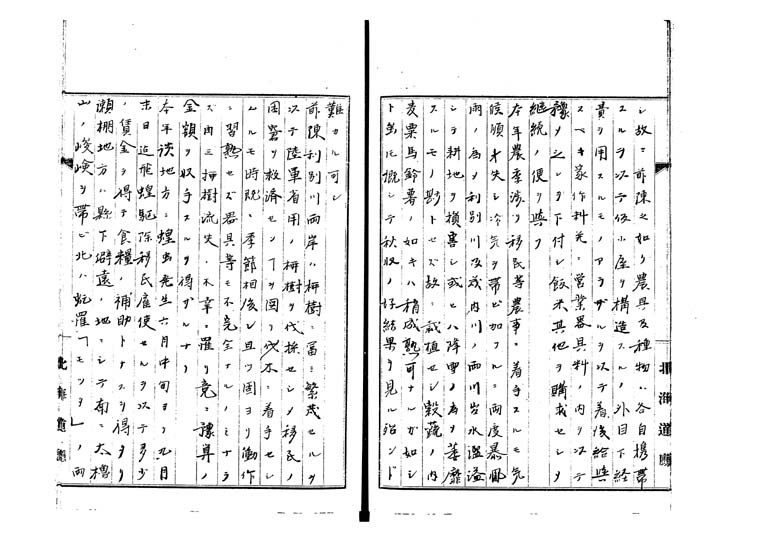 シ故ニ前陳之如ク農具及種物ハ各自携帯
スルヲ以テ仮小屋ヲ構造スルノ外目下経
費ヲ用スルモノアラザルヲ以テ着後給与
スベキ家作料并ニ営業器具料ノ内ヲ以テ
予メ之レヲ下付シ飯米其他ヲ購求セシメ
継続ノ便ヲ与フ
本年農季漸ク移民等農事ニ着手スルモ気
候順ヲ失シ冷気ヲ帯ビ加フルニ両度暴風
雨ノ為メ利別川及戓内川ノ両川岩水濫溢
シテ耕地ヲ損害シ或ヒハ降雪ノ為メ萎靡
スルモノ尠トセズ故ニ栽植セシ穀蔬ノ内
麦粟馬鈴薯ノ如キハ稍成熟可ナルガ如シ
ト雖ドモ概シテ秋収ノ好結果ヲ見ル殆ンド
北海道庁
難カル可シ
前陳利別川両岸ハ栴樹ニ富ミ繁茂セルヲ
以テ陸軍省用ノ栴樹ヲ伐採セシメ移民ノ
困窮ヲ救済センコヲ図リ伐木ニ着手セシ
ムルモ時既ニ季節相後レ且ツ固ヨリ働作
ニ習熟セズ器具等モ不完全ナルノミナラ
ズ内三栴樹流失ノ不幸ニ罹リ竟ニ予算ノ
金額ヲ収手スルヲ得ガルナリ
本年該地方ニ蝗虫発生六月中旬ヨリ九月
末日迄飛蝗駆除移民雇使セルヲ以テ多少
ノ賃金ヲ得テ食糧ノ補助トナスヲ得タリ
瀬棚地方ハ県下僻遠ノ地ニシテ南ニ太櫓
山ノ峻嶮ヲ帯ビ北ハ虻羅「モンヲ」ノ両
北海道庁